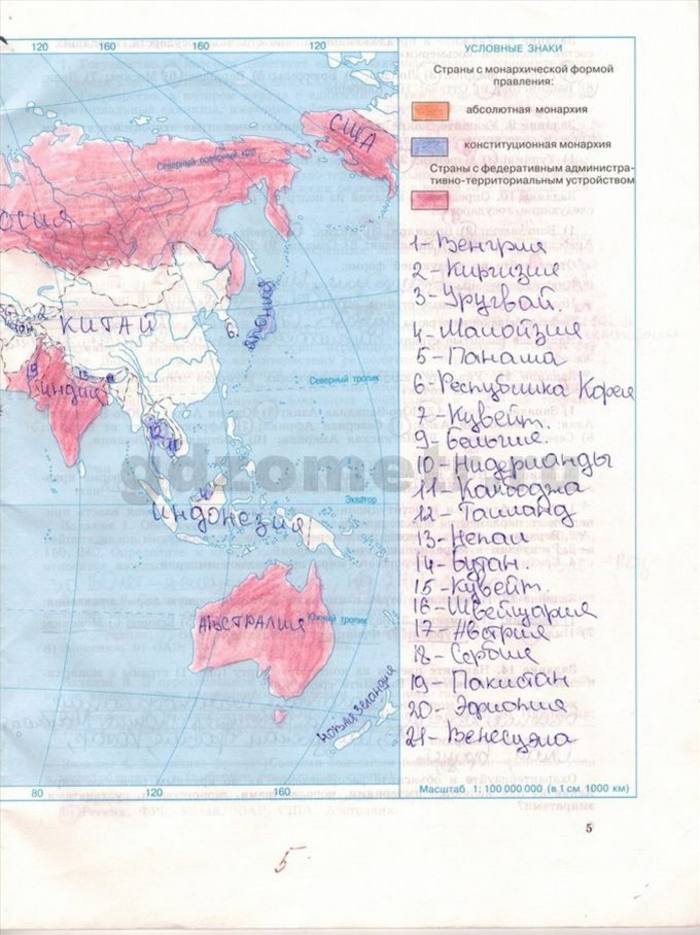 120 140 160 160 120
УСЛОВНЫЕ ЗНАКИ
Страны с монархической формой
правления:
абсолютная монархия
конституционная монархия
Страны с федеративным администра-
тивно-территориальным устройством
США
Северный полярный круг
ОССИЯ
КИТАЙ
6.
ЯПОНИЯ
19
ИНДИЯ
Северный тропик
12
11
4
Экватор
ИНДОНЕЗИЯ
АВСТРАЛИЯ
Южный тропик
НОВАЯ ЗЕЛАНДИЯ
1- Венгрия
2- Киргизия
3- Уругвай.
4- Малойзия
5- Панама
6- Республика Корея
7- Кувейт.
9- Бельгия.
10- Нидерланды
11- Камбоджа
12- Таиланд
13- Непал
14- Бутан.
15- Кувейт.
16- Швейцария
17- Австрия
18- Сербия
19- Пакистан
20- Эфиопия
21- Венесуэла
80 120 160
Масштаб 1: 100 000 000 (в 1 см 1000 км)
5
5